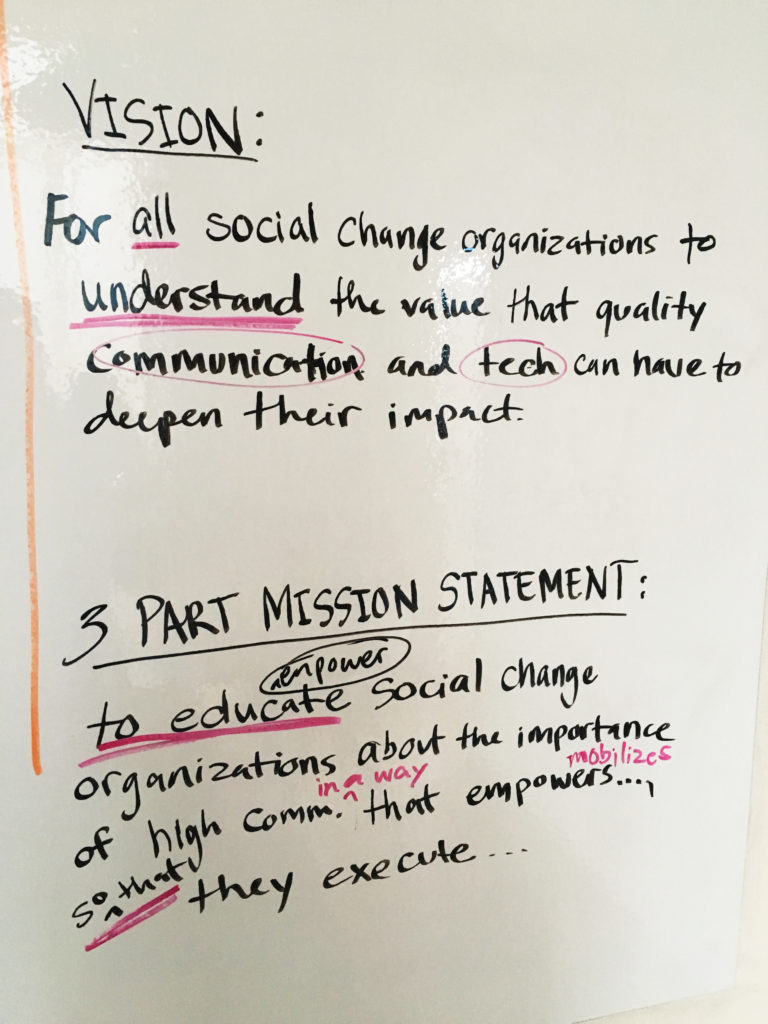 VISION:
For all social change organizations to
understand the value that quality
communication and tech can have to
deepen their impact.
3 PART MISSION STATEMENT:
empower
to educate social change
organizations about the importance
mobilizes
in a way
of high comm. ^ that empowers...,
so that they execute...